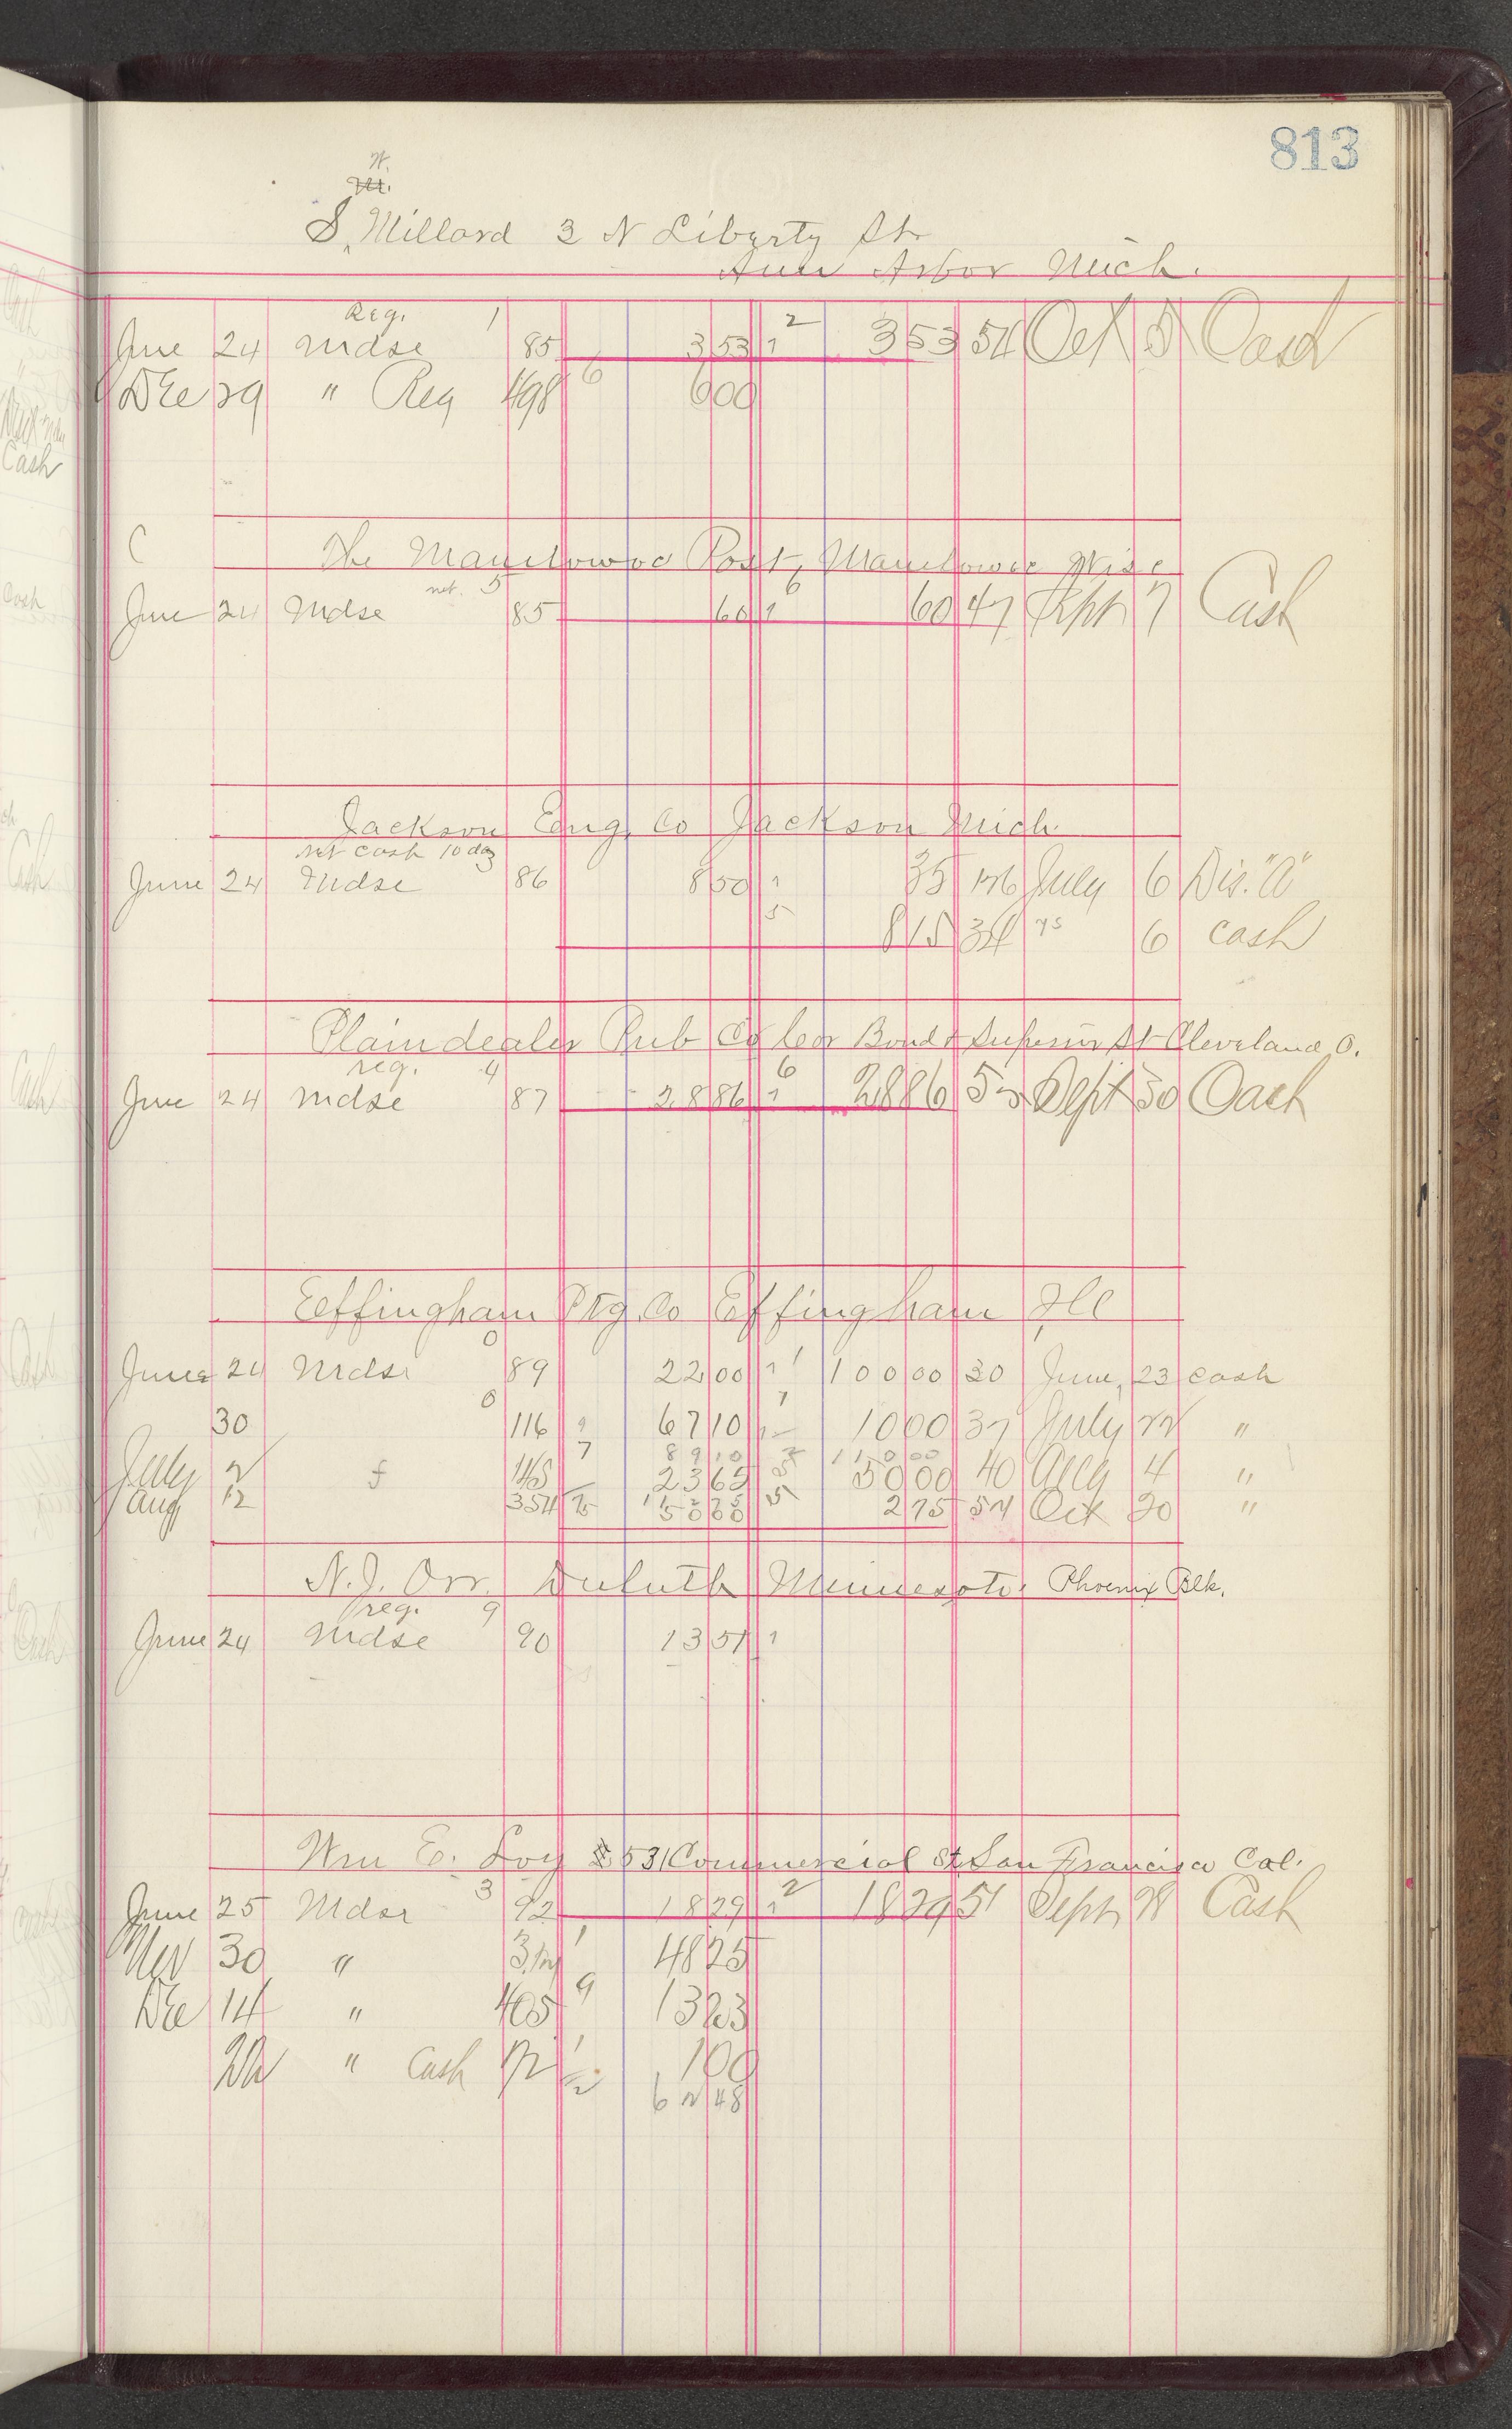 813
W.
S. Millard 3 N Liberty St.
Ann Arbor Mich.
Reg. 1 2
June 24 Mdse 85 3 53 1 3 53 54 Oct 5 Cash
Dec 29 " Reg 498 6 6 00
C The Manitowoc Post, Manitowoc Wisc
net. 5 6
June 24 Mdse 85 60 1 60 47 Sept 7 Cash
Jackson Eng. Co Jackson Mich.
net cash 10 dag
June 24 Mdse 86 8 50 1 35 126 July 6 Dis. "A"
5 8 15 34 6 cash
Plaindealer Pub Co Cor Bond & Superior St Cleveland, O.
reg. 4 6
June 24 mdse 87 28 86 1 28 86 53 Sept 30 Cash
Eeffingham Ptg. Co Effingham Ill
0
June 24 Mdse 89 22 00 1 1 100 00 30 June, 23 cash
0
30 116 67 10 10 00 37 July 22 "
7 89 10 110 00
July 2 f 145 23 65 50 00 40 Aug 4 "
112 75
Aug 12 354 50 00 5 2 75 54 Oct 20 "
N.J. Orr. Duluth Minnesota Phoenix Blk.
reg. 9
June 24 Mdse 90 13 51 1
Wm E. Loy 531 Commercial St San Francisco Cal.
3 2
June 25 Mdse 92 18 29 1 18 29 51 Sept 28 Cash
Nov 30 " 312 1 48 25
Dec 14 " 405 9 13 23
22 " Cash 72 1 1 00
62 48